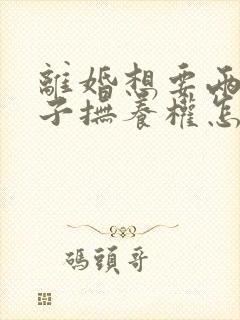 離婚想要兩
子撫養權怎
碼頭哥